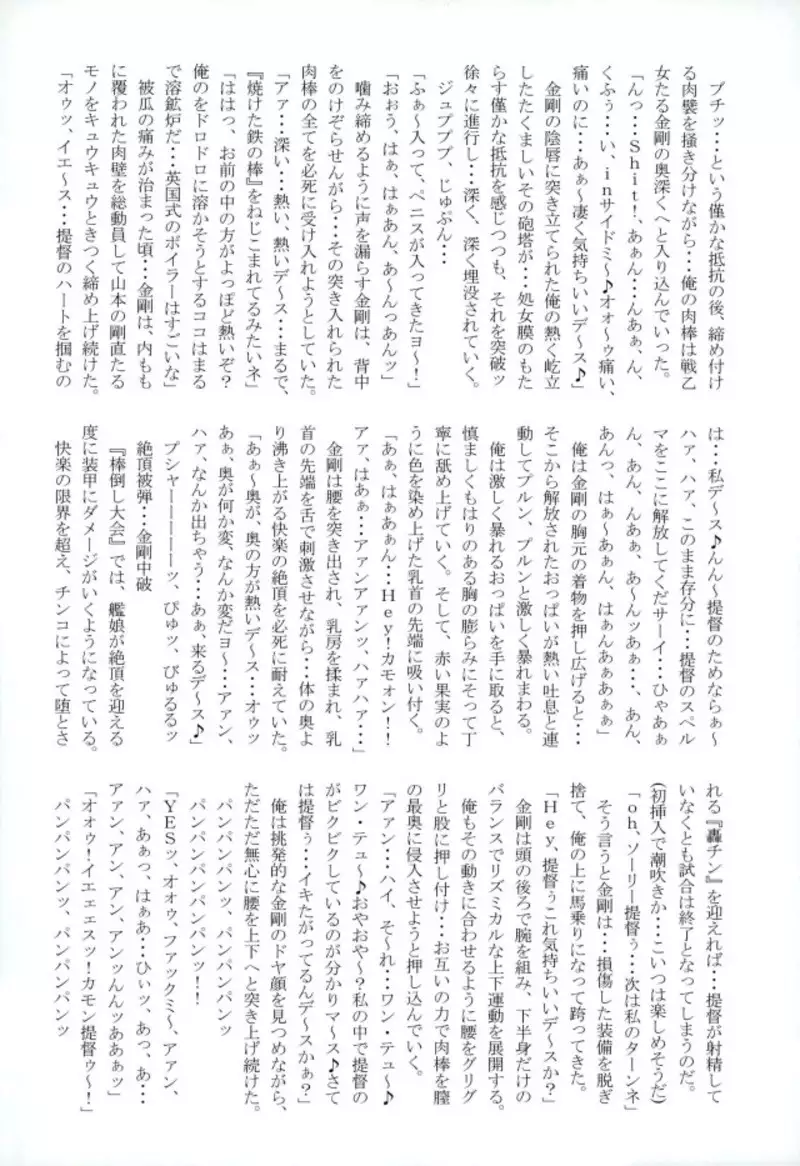 プチッ・・・という僅かな抵抗の後、締め付け
る肉襞を掻き分けながら・・・俺の肉棒は戦乙
女たる金剛の奥深くへと入り込んでいった。
「んっ・・・Shit!、あぁん・・・んあぁ、ん、
くふぅ・・・い、inサイドミ～♪オォ～ゥ痛い、
痛いのに・・・あぁ～凄く気持ちいいデ～ス♪」
　金剛の陰唇に突き立てられた俺の熱く屹立
したたくましいその砲塔が・・・処女膜のもた
らす僅かな抵抗を感じつつも、それを突破ッ
徐々に進行し・・・深く、深く埋没されていく。
　ジュプププ、じゅぷん・・・
「ふぁ～入って、ペニスが入ってきたヨ～！」
「おぉう、はぁ、はぁあん、あ～んっあんッ」
　噛み締めるように声を漏らす金剛は、背中
をのけぞらせんがら・・・その突き入れられた
肉棒の全てを必死に受け入れようとしていた。
「アァ・・・深い・・・熱い、熱いデ～ス・・・まるで、
『焼けた鉄の棒』をねじこまれてるみたいネ」
「ははっ、お前の中の方がよっぽど熱いぞ？
俺のをドロドロに溶かそうとするココはまる
で溶鉱炉だ・・・英国式のボイラーはすごいな」
　被瓜の痛みが治まった頃・・・金剛は、内もも
に覆われた肉壁を総動員して山本の剛直たる
モノをキュウキュウときつく締め上げ続けた。
「オゥッ、イエ～ス・・・提督のハートを掴むの
は・・・私デ～ス♪んん～提督のためならぁ～
ハァ、ハァ、このまま存分に・・・提督のスペル
マをここに解放してくだサーイ・・・ひゃあぁ
ん、あん、んあぁ、あ～んッあぁ・・・、あん、
あんっ、はぁ～あぁん、はぁんあぁあぁぁ」
　俺は金剛の胸元の着物を押し広げると・・・
そこから解放されたおっぱいが熱い吐息と連
動してプルン、プルンと激しく暴れまわる。
　俺は激しく暴れるおっぱいを手に取ると、
慎ましくもはりのある胸の膨らみにそって丁
寧に舐め上げていく。そして、赤い果実のよ
うに色を染め上げた乳首の先端に吸い付く。
「あぁ、はぁあぁん・・・Hey!カモォン！！
アァ、はあぁ・・・アァンアァンッ、ハァハァ・・・」
　金剛は腰を突き出され、乳房を揉まれ、乳
首の先端を舌で刺激させながら・・・体の奥よ
り沸き上がる快楽の絶頂を必死に耐えていた。
「あぁ～奥が、奥の方が熱いデ～ス・・・オゥッ
あぁ、奥が何か変、なんか変だヨ～・・・アァン、
ハァ、なんか出ちゃう・・・あぁ、来るデ～ス♪」
　プシャーーーーーッ、ぴゅッ、びゅるるッ
絶頂被弾・・・金剛中破
　『棒倒し大会』では、艦娘が絶頂を迎える
度に装甲にダメージがいくようになっている。
　快楽の限界を超え、チンコによって堕とさ
れる『轟チン』を迎えれば・・・提督が射精して
いなくとも試合は終了となってしまうのだ。
(初挿入で潮吹きか・・・こいつは楽しめそうだ)
「oh、ソーリー提督ぅ・・・次は私のターンネ」
　そう言うと金剛は・・・損傷した装備を脱ぎ
捨て、俺の上に馬乗りになって跨ってきた。
「Hey、提督ぅこれ気持ちいいデ～スか？」
　金剛は頭の後ろで腕を組み、下半身だけの
バランスでリズミカルな上下運動を展開する。
　俺もその動きに合わせるように腰をグリグ
リと股に押し付け・・・お互いの力で肉棒を膣
の最奥に侵入させようと押し込んでいく。
「アァン・・・ハイ、そ～れ・・・ワン・テュ～♪
ワン・テュ～♪おやおや～？私の中で提督の
がビクビクしているのが分かりマ～ス♪さて
は提督ぅ・・・イキたがってるんデ～スかぁ？」
　俺は挑発的な金剛のドヤ顔を見つめながら、
ただただ無心に腰を上下へと突き上げ続けた。
　パンパンパンッ、パンパンパンッ
　パンパンパンパンパンッ！！
「YESッ、オォゥ、ファックミ～、アァン、
ハァ、あぁっ、はぁあ・・・ひぃッ、あっ、あ・・・
アァン、アン、アン、アンッんんッああぁッ」
「オオゥ！イエェェスッ！カモン提督ゥ～！」
　パンパンパンッ、パンパンパンッ